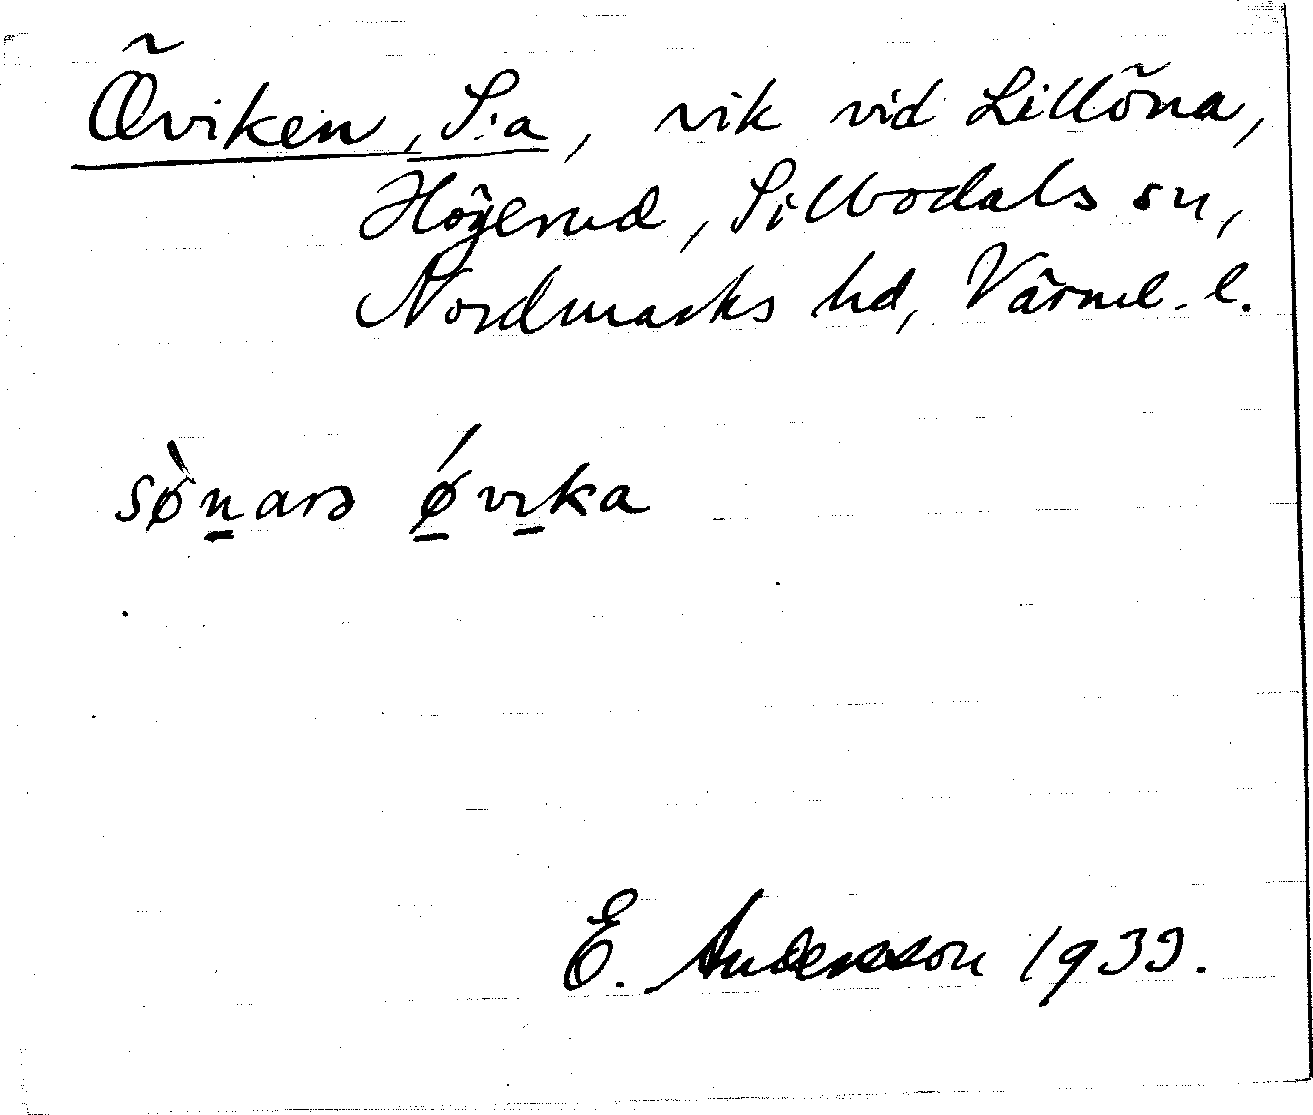 Öviken, S:a, vik vid Lillöna,
Högerud, Silbodals sn,
Nordmarks hd, Värml. l.
sø̀n̠arə ǿ̠vɪ̠ka
E. Andersson 1939.